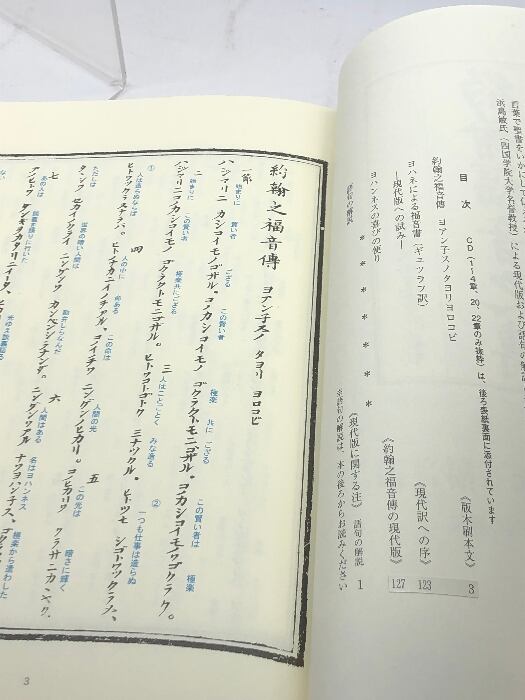 言葉で聖書をいかに
浜島敏氏(四国学院大学名誉教授)による現代版および語句の解
目次
CD(1〜4章、20、22章のみ抜粋)は、後ろ表紙裏面に添付されています
約翰之福音傳 ヨアン子スノタヨリヨロコビ 《版本刷本文》 3
ヨハネによる福音書(ギュツラフ訳) 《現代訳への序》 123
―現代版への試み― 《約翰之福音傳の現代版》 127
ヨハンネスの喜びの便り
* * * * * *
《現代版に関する注》 語句の解説 1
※語句の解説は、本の後ろからお読みください
約翰之福音傳 ヨアン子スノ タヨリ ヨロコビ
一節 始まりに 賢い者 ござる この賢い者 極楽 共に ござる この賢い者は 極楽
ハジマリニ カシコイモノゴザル。コノカシコイモノ ゴクラクトモニゴザル。コノカシコイモノワゴクラク。
二 始まりに この賢い者 極楽共にござる
ハジマリニコノカシコイモノ ゴクラクトモニゴザル。
三 人はことごとく みな造る ② 一つも仕事は造らぬ
ヒトワコトゴトク ミナツクル。ヒトツモ シゴトワツクラヌ、
① 人は造らぬならば
ヒトワツクラヌナラバ。
四 人の中に 命ある この命は 人間の光
ヒトノナカニイノチアル、コノイノチワ ニンゲンノヒカリ。
五 この光は 暗さに輝く
コノヒカリワ クラサニカ
ただしは 世界の暗い人間は 勘弁しらなんだ
タダシワ セカイノクライ ニンゲンワ カンベンシラナンダ。
六 人間はある 名はヨハンネス 極楽から遣わした
ニンゲンワアル ナワヨハンネス、ゴクラク
七 あの人は 談義を語りに行いた 光ゆえ談義語る
アノヒトワ ダンギヲカタリニイータ、ヒ
3